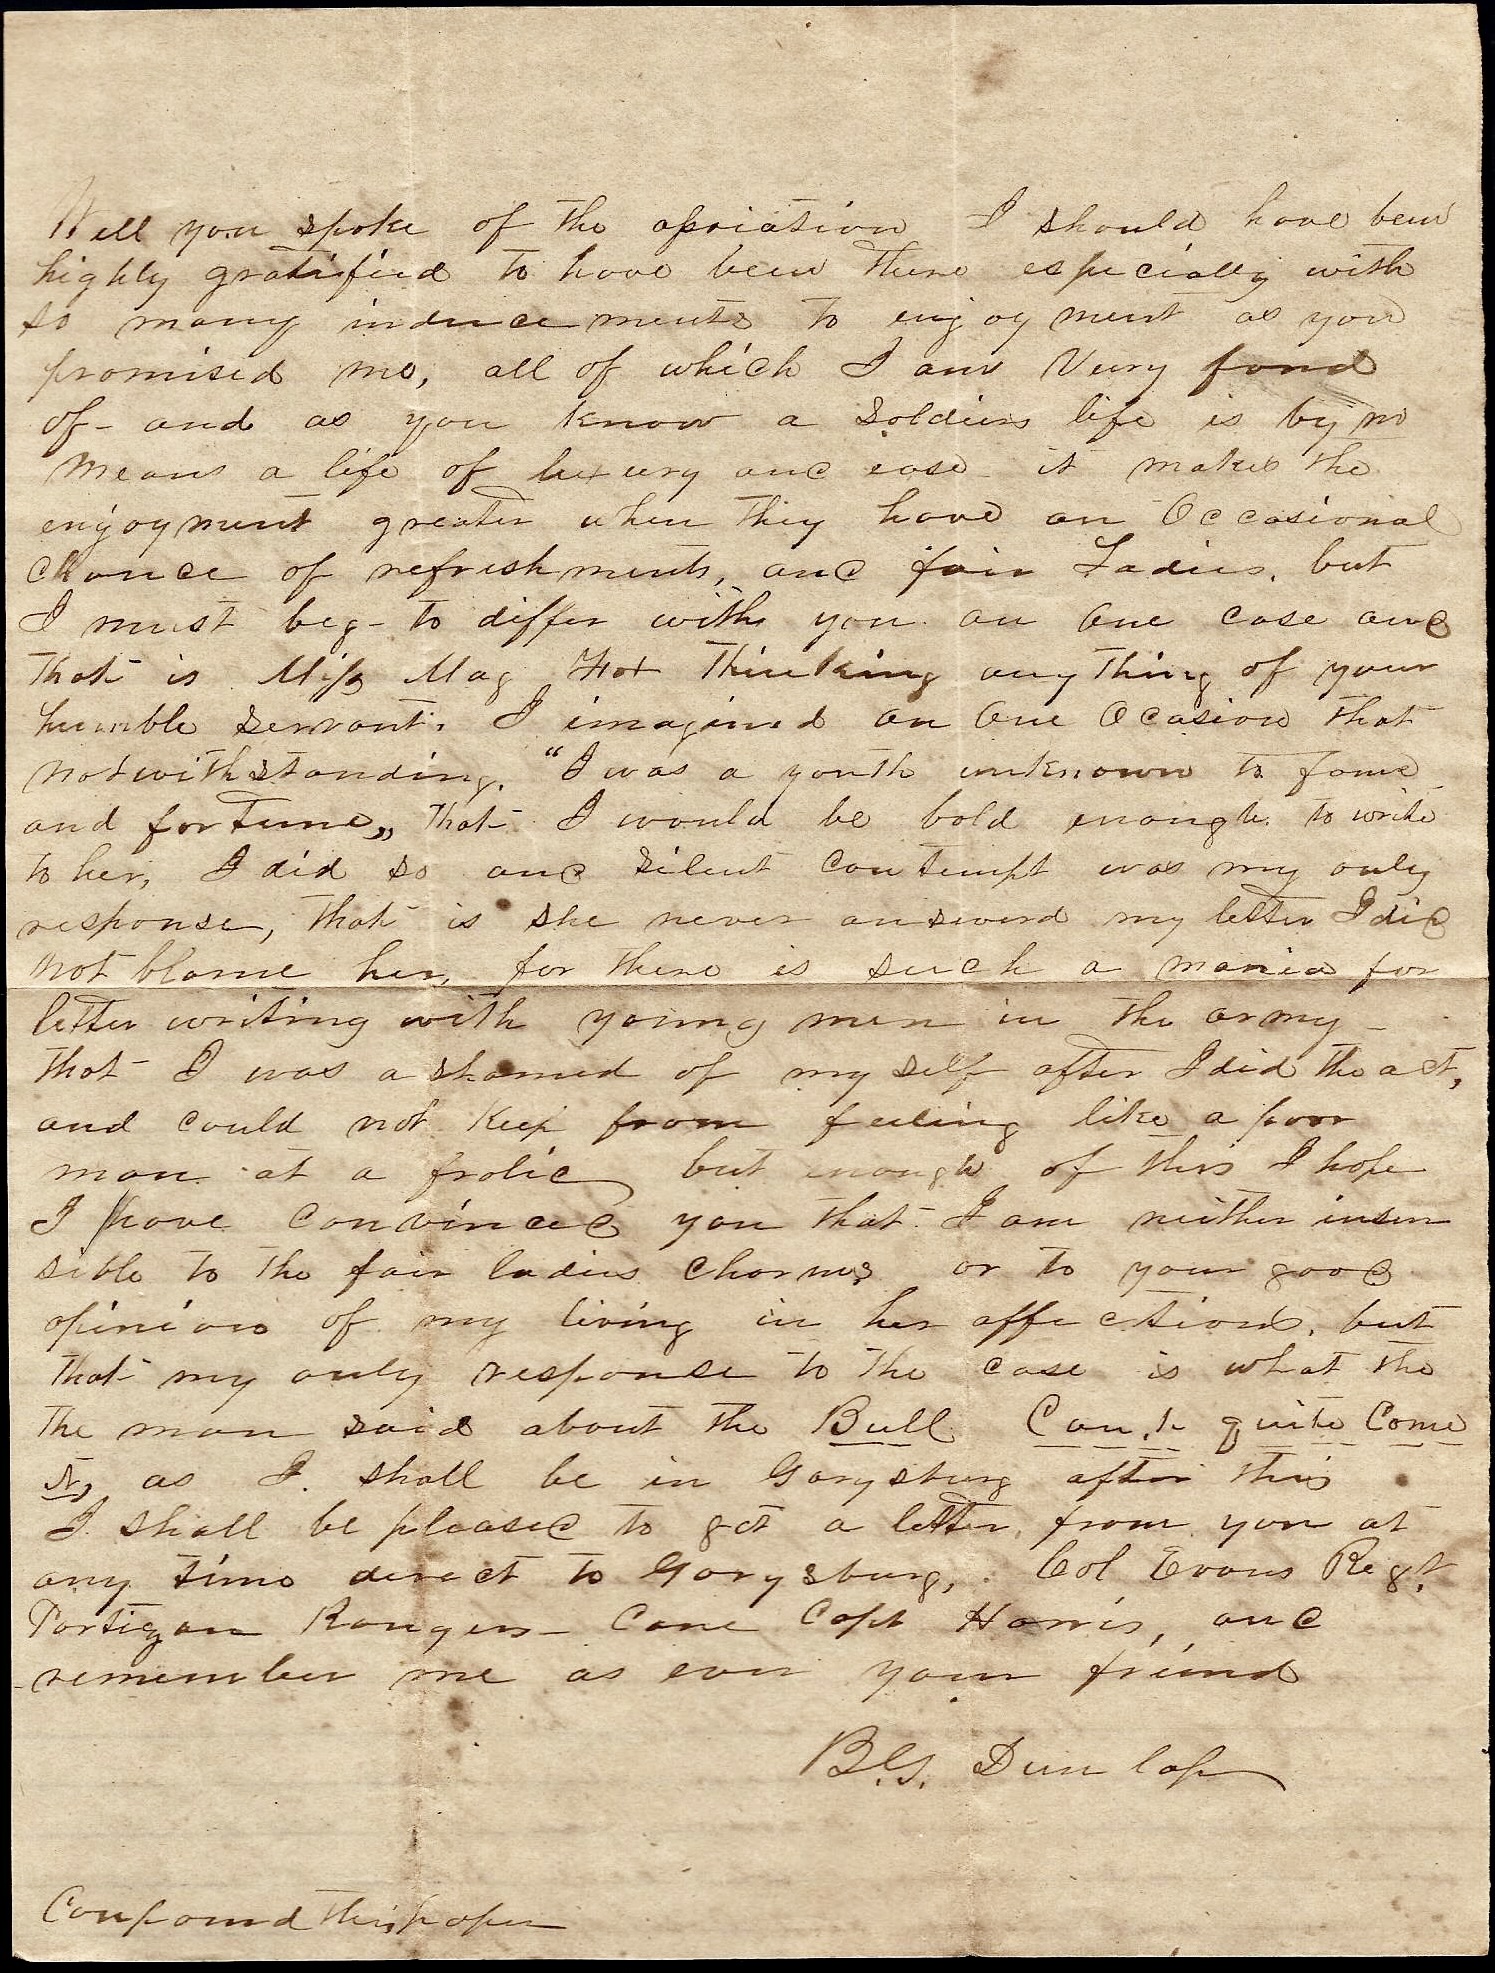 Well you spoke of the apsiation I should have been
highly gratified to have been there especially with
so many inducements to enjoyment as you
promised me, all of which I am Very fond
of - and as you know a soldiers life is by no
means a life of luxury and ease it makes the
enjoyment greater when they have an Occasional
chance of refreshments, and fair Ladies, but
I must beg - to differ with you on One case and
that is Miss Mag Not Thinking anything of your
humble servant. I imagined on One Ocasion that
notwithstanding, "I was a youth unknown to fame
and fortune,, that I would be bold enough to write
to her, I did so and silent contempt was my only
response, that is she never answerd my letter I did
not blame her, for there is such a mania for
letter writing with young men in the army -
that I was ashamed of my self after I did the act,
and could not keep from feeling like a poor
man at a frolic but enough of this I hope
I have convinced you that I am neither insen
sible to the fair ladies charms or to your good
opinion of my living in her affections, but
that my only response to the case is what the
the man said about the Bull Can,t quite Come
it, as I shall be in Garysburg after this
I shall be pleased to get a letter from you at
any time direct to Garysburg, Col Evans Regt
Partizan Rangers - Care Capt Harris, and
remember me as ever your friend
B.G. Dunlop
Confound this paper